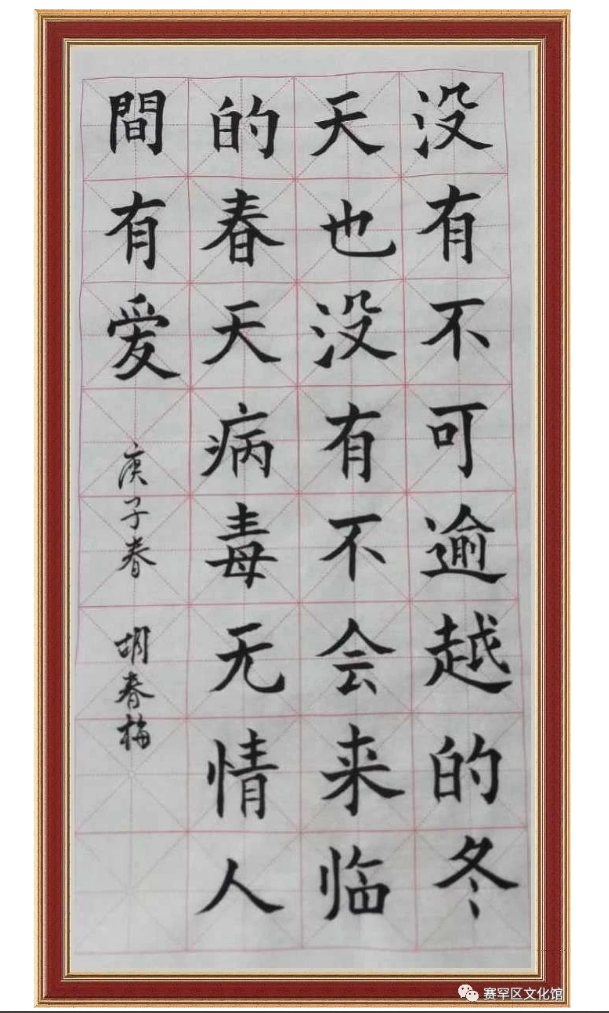 没有不可逾越的冬
天也没有不会来临
的春天病毒无情人
間有爱
庚子春 胡春梅
赛罕区文化馆